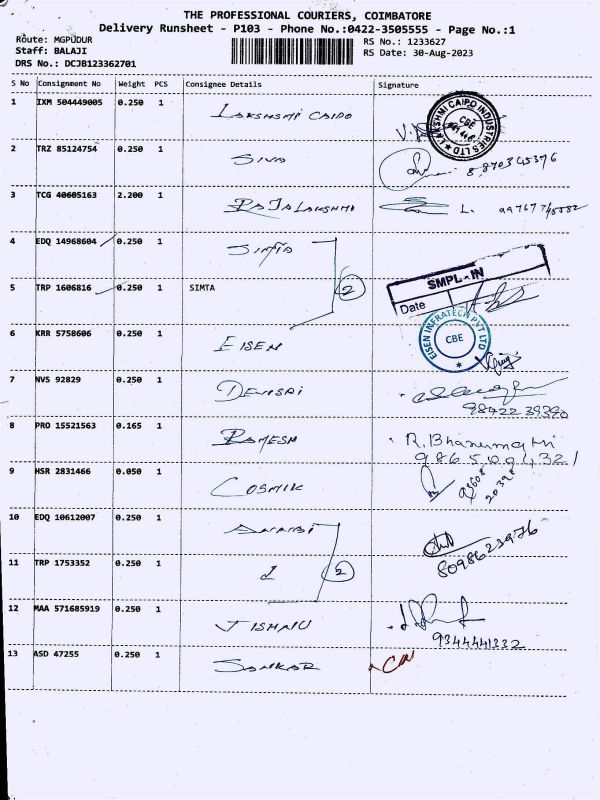 THE PROFESSIONAL COURIERS, COIMBATORE
Delivery Runsheet - P103 - Phone No.:0422-3505555 - Page No.:1
Route: MGPUDUR
Staff: BALAJI
DRS No.: DCJB123362701
RS No.: 1233627
RS Date: 30-Aug-2023
S No Consignment No Weight PCS Consignee Details Signature
1 IXM 504449005 0.250 1 LAKSHSMI CAIPO
LAKSHMI CAIPO INDUSTRIES LTD CBE
2 TRZ 85124754 0.250 1 SIVA
3 TCG 40605163 2.200 1 RAJALAKSHMI L.
4 EDQ 14968604 0.250 1 SIMTA
5 TRP 1606816 0.250 1 SIMTA 2
SMPL-IN
Date
6 KRR 5758606 0.250 1 EISEN
EISEN INFRATECH PVT LTD CBE
7 NVS 92829 0.250 1
9842239390
8 PRO 15521563 0.165 1 RAMESH R. Bhanumathi
9865091321
9 HSR 2831466 0.050 1 COSMIK
10 EDQ 10612007 0.250 1
8098623976
11 TRP 1753352 0.250 1 2
12 MAA 571685919 0.250 1 JISHNU
9344441332
13 ASD 47255 0.250 1 SANKAR